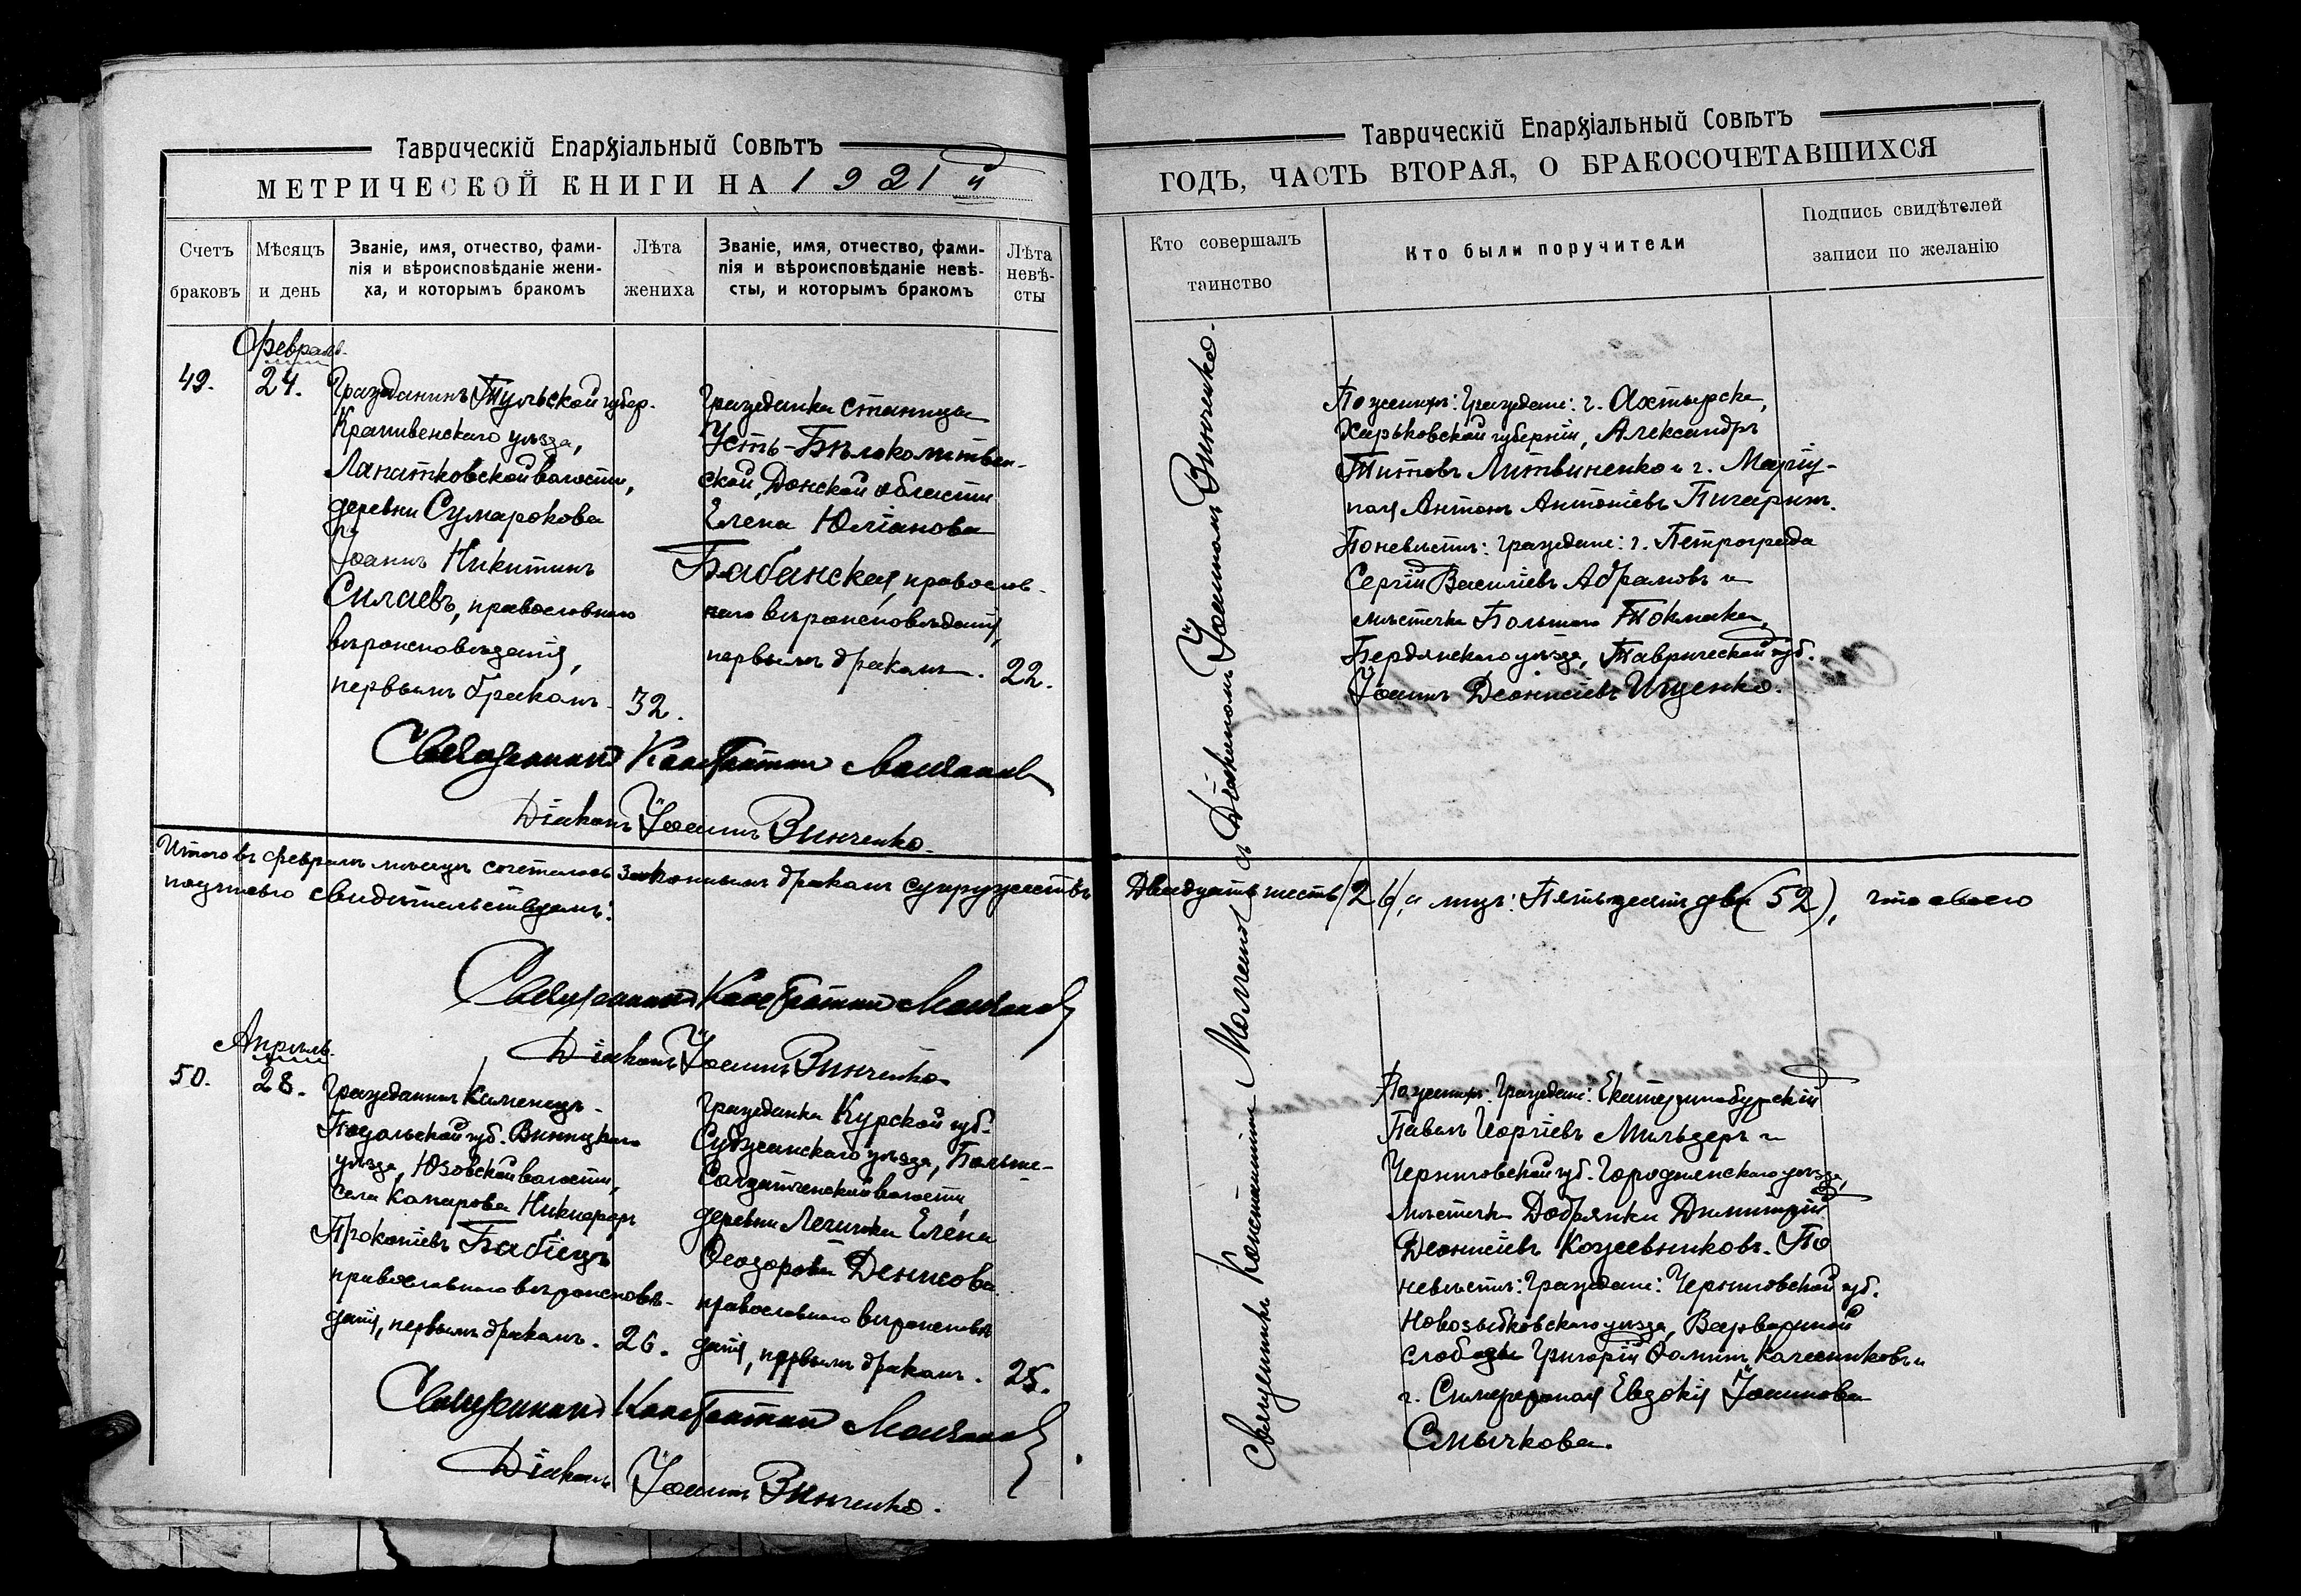 Таврическій Епархіальный Совѣтъ
МЕТРИЧЕСКОЙ КНИГИ НА 1921 й
Счетъ браковъ
Мѣсяцъ и день
Званіе, имя, отчество, фами-
лія и вѣроисповѣданіе жени-
ха, и которымъ бракомъ
Лѣта жениха
Званіе, имя, отчество, фами-
лія и вѣроисповѣданіе невѣ-
сты, и которымъ бракомъ
Лѣта
невѣ-
сты
Февраль.
49.
24.
Гражданинъ Тульской губер.
Крапивенскаго уѣзда,
Лапатковской волости,
деревни Сумарокова
Іоаннъ Никитинъ
Силаевъ, православнаго
вѣроисповѣданія,
первымъ бракомъ.
32.
Гражданка станицы
Усть-Бѣлокалитвен-
ской, Донской области
Елена Юліанова
Бабанская, православ-
наго вѣроисповѣданія,
первымъ бракомъ.
22.
Священникъ Константинъ Молчановъ
Діаконъ Іоаннъ Винченко.
Итого въ февралѣ мѣсяцѣ сочеталось законнымъ бракомъ супружествъ
подписью свидѣтельствуемъ:
Священникъ Константинъ Молчановъ
Діаконъ Іоаннъ Винченко
Апрѣль.
50.
28.
Гражданинъ Каменецъ-
Подольской губ. Винницкаго
уѣзда, Юзовской волости,
села Комарова Никифоръ
Прокопіевъ Бабіецъ
православнаго вѣроисповѣ-
данія, первымъ бракомъ.
26.
Гражданка Курской губ.
Суджанскаго уѣзда, Больше-
Солдатченской волости
деревни Елена
Ѳеодорова Денисова
православнаго вѣроисповѣ
данія, первымъ бракомъ.
25.
Священникъ Константинъ Молчановъ
Діаконъ Іоаннъ Винченко.
Таврическій Епархіальный Совѣтъ
ГОДЪ, ЧАСТЬ ВТОРАЯ, О БРАКОСОЧЕТАВШИХСЯ
Кто совершалъ таинство
Кто были поручители
Подпись свидѣтелей
записи по желанію
Священникъ Константинъ Молчановъ съ Діакономъ Іоанномъ Винченко.
По женихѣ: Граждане: г. Ахтырска,
Харьковской губерніи, Александръ
Титовъ Литвиненко и г. Маріу-
поля Антонъ Антоніевъ Пичаринъ.
По невѣстѣ: Граждане: г. Петрограда
Сергій Василіевъ Абрамовъ и
мѣстечка Большого Токмака,
Бердянскаго уѣзда, Таврической губ.
Іоаннъ Діонисіевъ Ищенко.
Двадцать шесть /26/, а лицъ: Пятьдесятъ два (52), что своею
По женихѣ: Граждане: Екатеринобургскій
Павелъ Георгіевъ Мильдеръ и
Черниговской губ. Городнянскаго уѣзда,
мѣстечка Добрянки Димитрій
Діонисіевъ Кожевниковъ. По
невѣстѣ: Граждане: Черниговской губ.
Новозыбковскаго уѣзда,
слободы Григорій Ѳоминъ Калашниковъ и
г. Симферополя Евдокія Іоаннова
Смычкова.